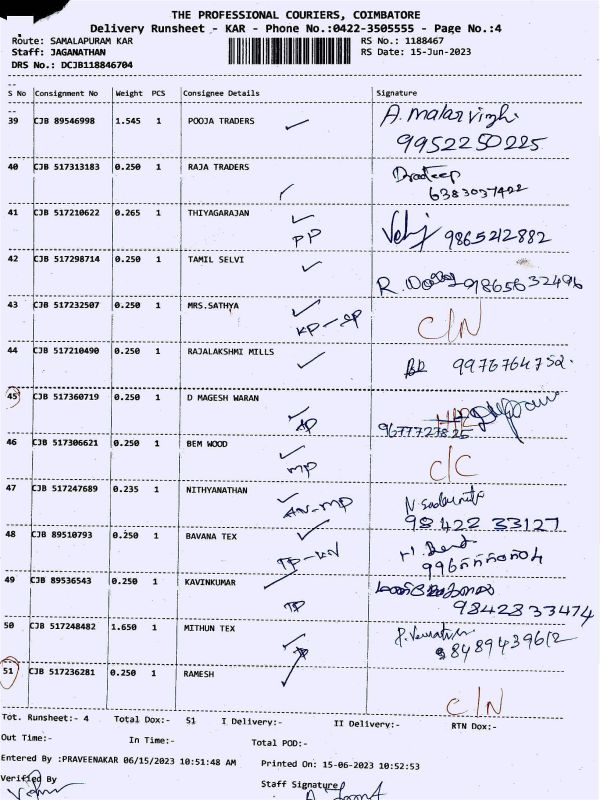 THE PROFESSIONAL COURIERS, COIMBATORE
Delivery Runsheet - KAR - Phone No.:0422-3505555 - Page No.:4
Route: SAMALAPURAM KAR RS No.: 1188467
Staff: JAGANATHAN RS Date: 15-Jun-2023
DRS No.: DCJB118846704
S No Consignment No Weight PCS Consignee Details Signature
39 CJB 89546998 1.545 1 POOJA TRADERS A. Malar vizhi
9952250225
40 CJB 517313183 0.250 1 RAJA TRADERS Pradeep
6383037422
41 CJB 517210622 0.265 1 THIYAGARAJAN
PP 9865212882
42 CJB 517298714 0.250 1 TAMIL SELVI
R. 9865632496
43 CJB 517232507 0.250 1 MRS.SATHYA C/N
KP-SP
44 CJB 517210490 0.250 1 RAJALAKSHMI MILLS 9976764752.
45 CJB 517360719 0.250 1 D MAGESH WARAN
AP 9677727825
46 CJB 517306621 0.250 1 BEM WOOD C/C
MP
47 CJB 517247689 0.235 1 NITHYANATHAN
AN-MP 98422 33127
48 CJB 89510793 0.250 1 BAVANA TEX
TP-KN
49 CJB 89536543 0.250 1 KAVINKUMAR
TP 9842833474
50 CJB 517248482 1.650 1 MITHUN TEX
TP 8489439612
51 CJB 517236281 0.250 1 RAMESH
C/N
Tot. Runsheet:- 4 Total Dox:- 51 I Delivery:- II Delivery:- RTN Dox:-
Out Time:- In Time:- Total POD:-
Entered By :PRAVEENAKAR 06/15/2023 10:51:48 AM Printed On: 15-06-2023 10:52:53
Verified By Staff Signature